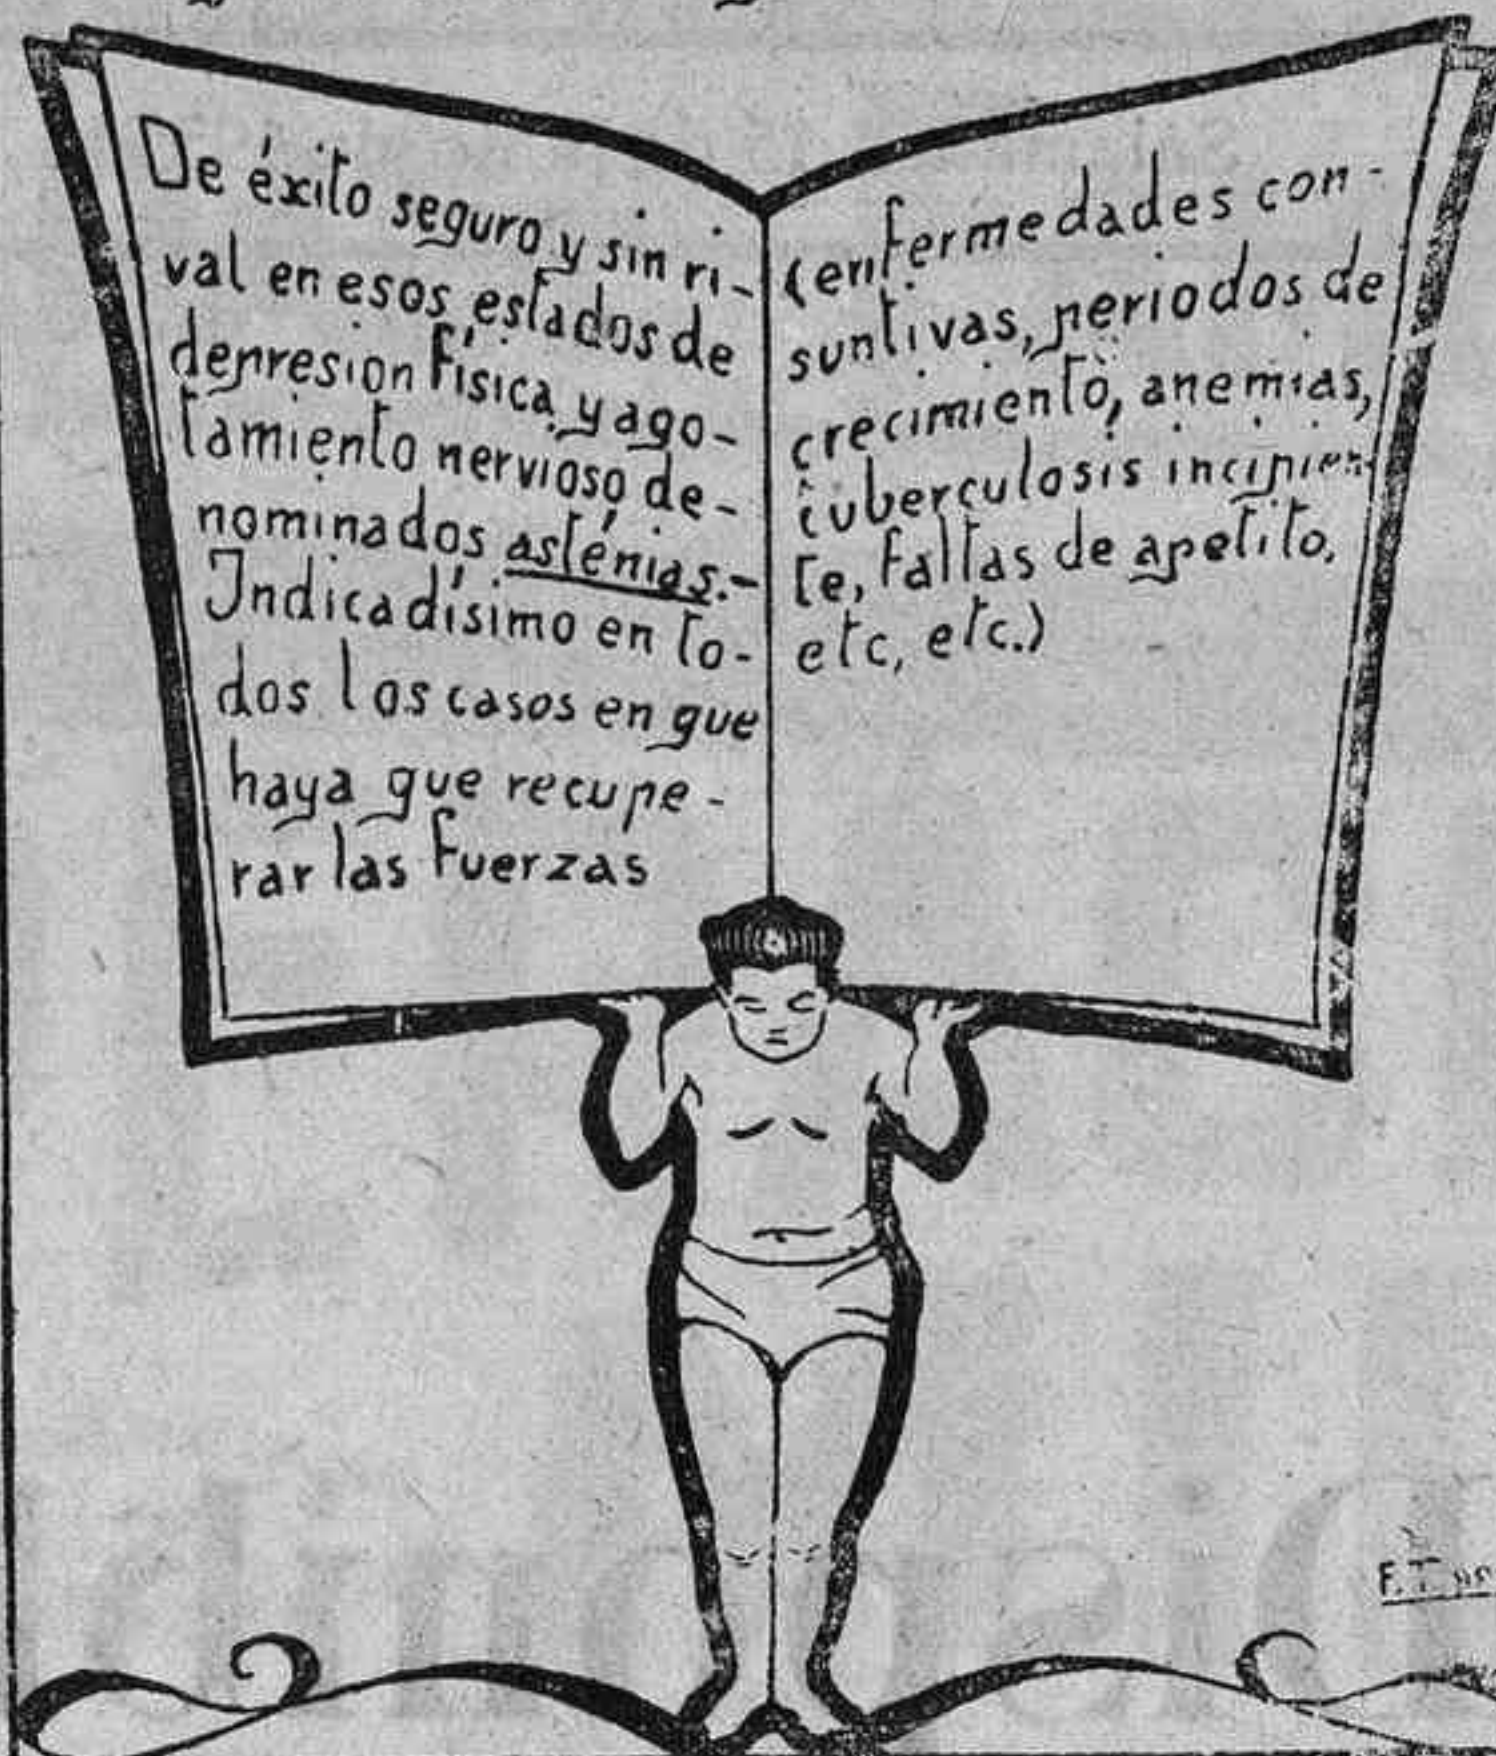 De éxito seguro y sin ri-
val en esos estados de
depresion física y ago-
tamiento nervioso de-
nominados asténias.-
Indicadísimo en to-
dos los casos en que
haya que recupe-
rar las fuerzas
(enfermedades con-
suntivas, periodos de
crecimiento, anemias,
tuberculosis incipien-
te, faltas de apetito,
etc, etc.)
F. T.